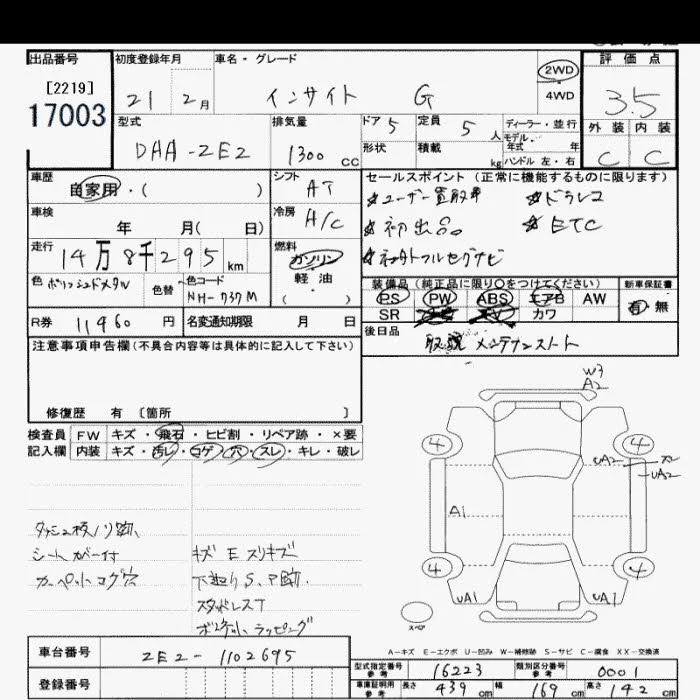 出品番号 初度登録年月 車名・グレード 評価点
[2219]
17003
21 2月 インサイト G 2WD 4WD 3.5
型式 排気量 ドア 5 定員 5人 ディーラー・並行 外装 内装
モデル・年式 年
DAA-ZE2 1300cc 形状 積載 kg ハンドル 左・右 C C
車歴 シフト セールスポイント (正常に機能するものに限ります)
自家用・( ) AT ☆ユーザー買取車 ☆ドラレコ
車検 冷房 ☆初出品 ☆ETC
年 月( 日) A/C
走行 燃料 フルセグナビ
14万8千295km ガソリン・軽油・( )
色 ポリッシュドメタル 色替 色コード NH-737M
装備品 (純正品に限り○をつけてください) 新車保証書
PS PW ABS エアB AW 有・無
SR TV カワ
R券 11960円 名変通知期限 月 日
後日品
取説 メンテナンスノート
注意事項申告欄(不具合内容等は具体的に記入して下さい)
修復歴 有 〔箇所 〕
検査員 FW キズ・飛石・ヒビ割・リペア跡・×要
記入欄 内装 キズ・汚レ・コゲ・穴・スレ・キレ・破レ
W3
A2
4 4
UA2
UA2
A1
4 4
UA1 UA1
スペア
ダッシュ板ノリ跡、
シートカバー付 キズ E スリキズ
カーペットコゲ穴 下廻りS、P跡.
スタッドレスT
ラッピング
A-キズ E-エクボ U-凹み W-補修跡 S-サビ C-腐食 XX-交換済
車台番号 ZE2-1102695
登録番号
型式指定番号 参考 16223 類別区分番号 参考 0001
車庫証明用 参考 長さ 439cm 幅 169cm 高さ 142cm